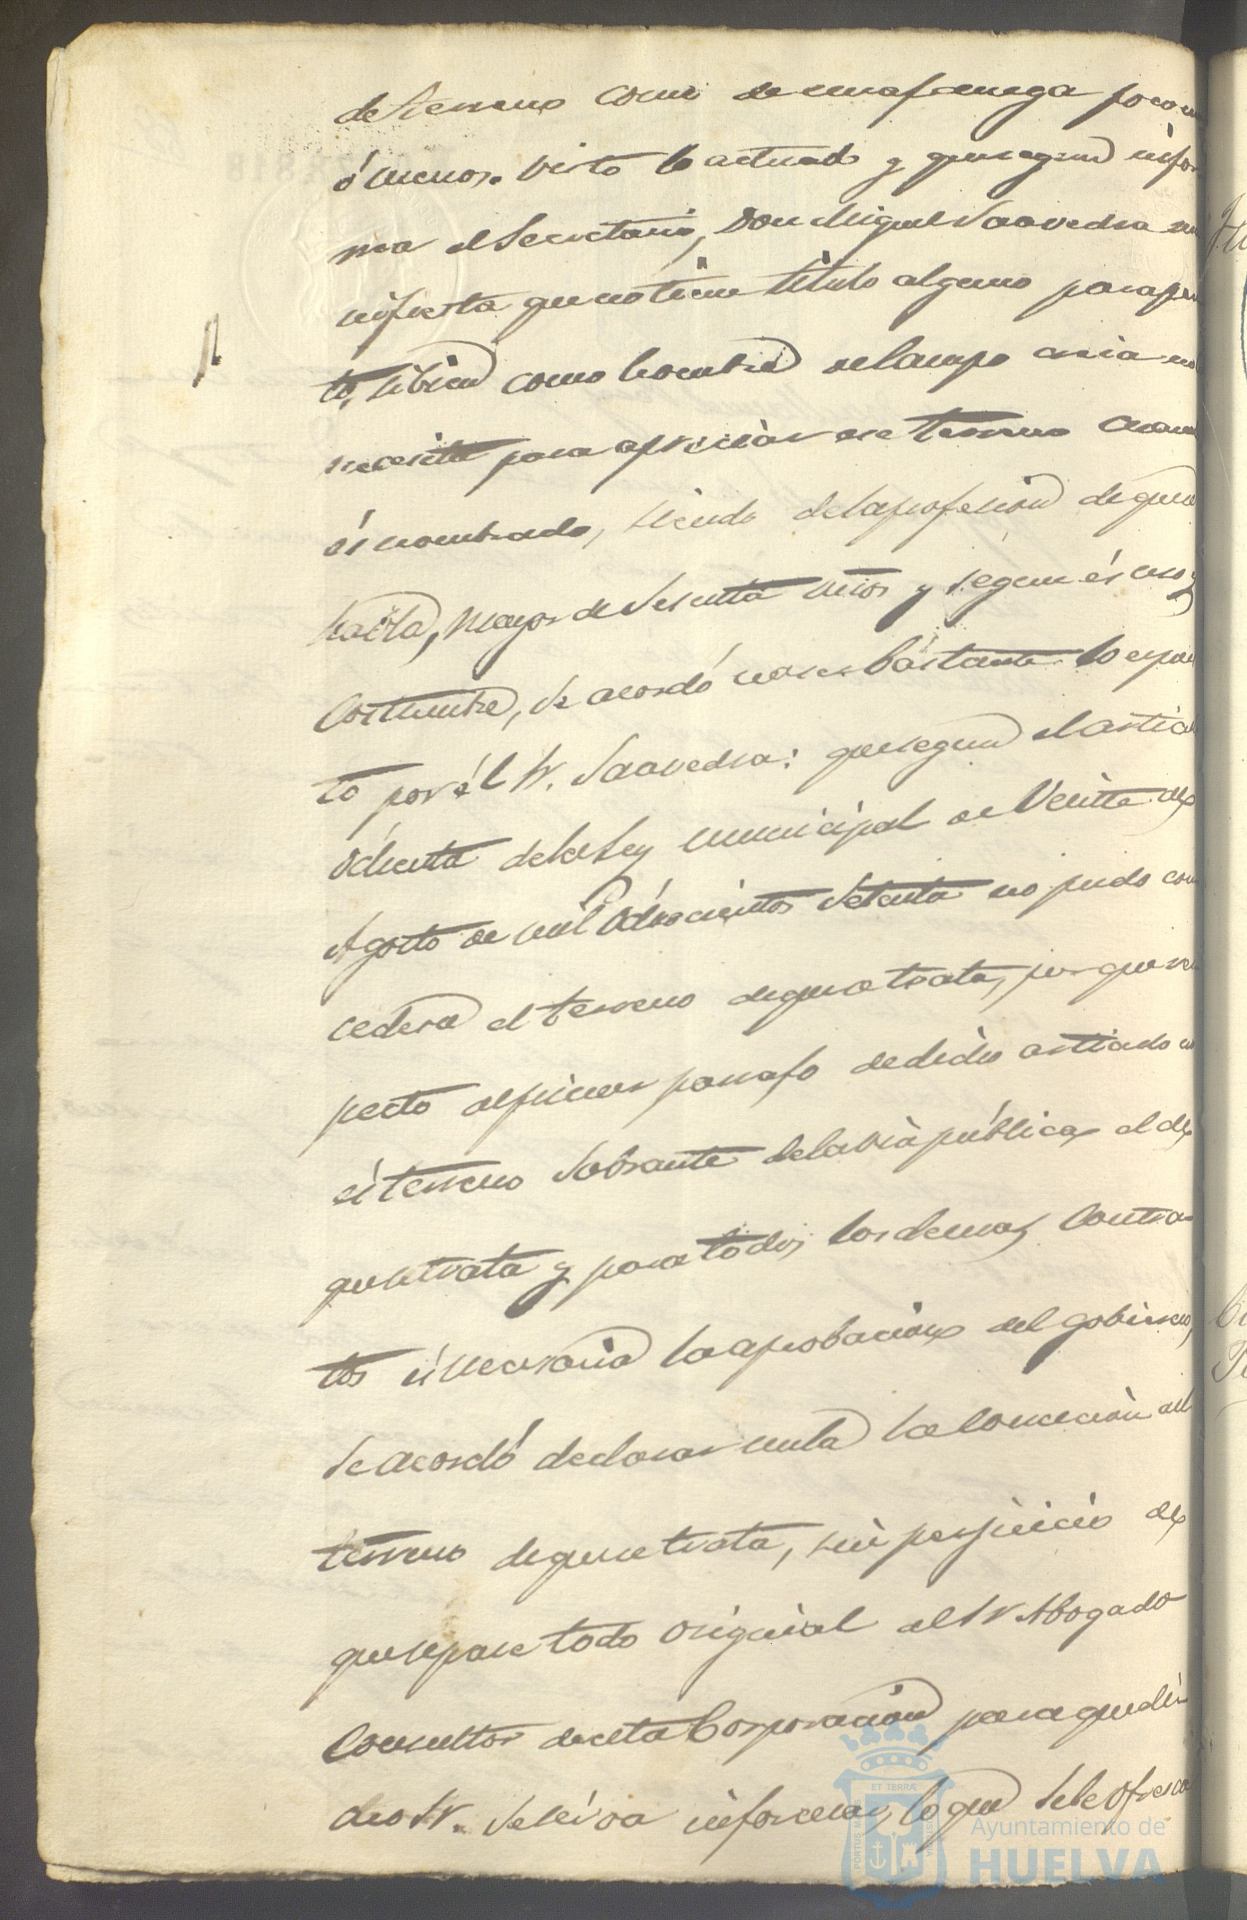 de terreno como de una fanega poco m
ó menos. Visto lo actuado y que segun infor
ma el Secretario, Don Miguel Saavedra ma
nifiesta que no tiene titulo alguno para peri
to, si bien como hombre del campo creia no
necesita para apreciar ese terreno cuando
és nombrado, siendo de la profesion de que se
trata, mayor de sesenta años y segun és uso y
costumbre, se acordó no ser bastante lo espues
to por él Sr. Saavedra: que segun el articulo
ochenta de la Ley municipal de Veinte de
Agosto de mil ochocientos setenta no pudo con
cederse el terreno de que se trata, por que res
pecto al primer parrafo de dicho articulo no
és terreno sobrante de la via pública el de
que se trata y para todos los demas contra
tos és necesaria la aprobacion del gobierno,
se acordó declarar nula la concecion del
terreno de que se trata, sin perjuicio de
que se pase todo original al Sr Abogado
Consultor de esta Corporacion para que di
cho Sr. se sirva informar lo que se le ofresca
Ayuntamiento de
HUELVA
ET TERRÆ
PORTUS MARIS
CUSTODIA